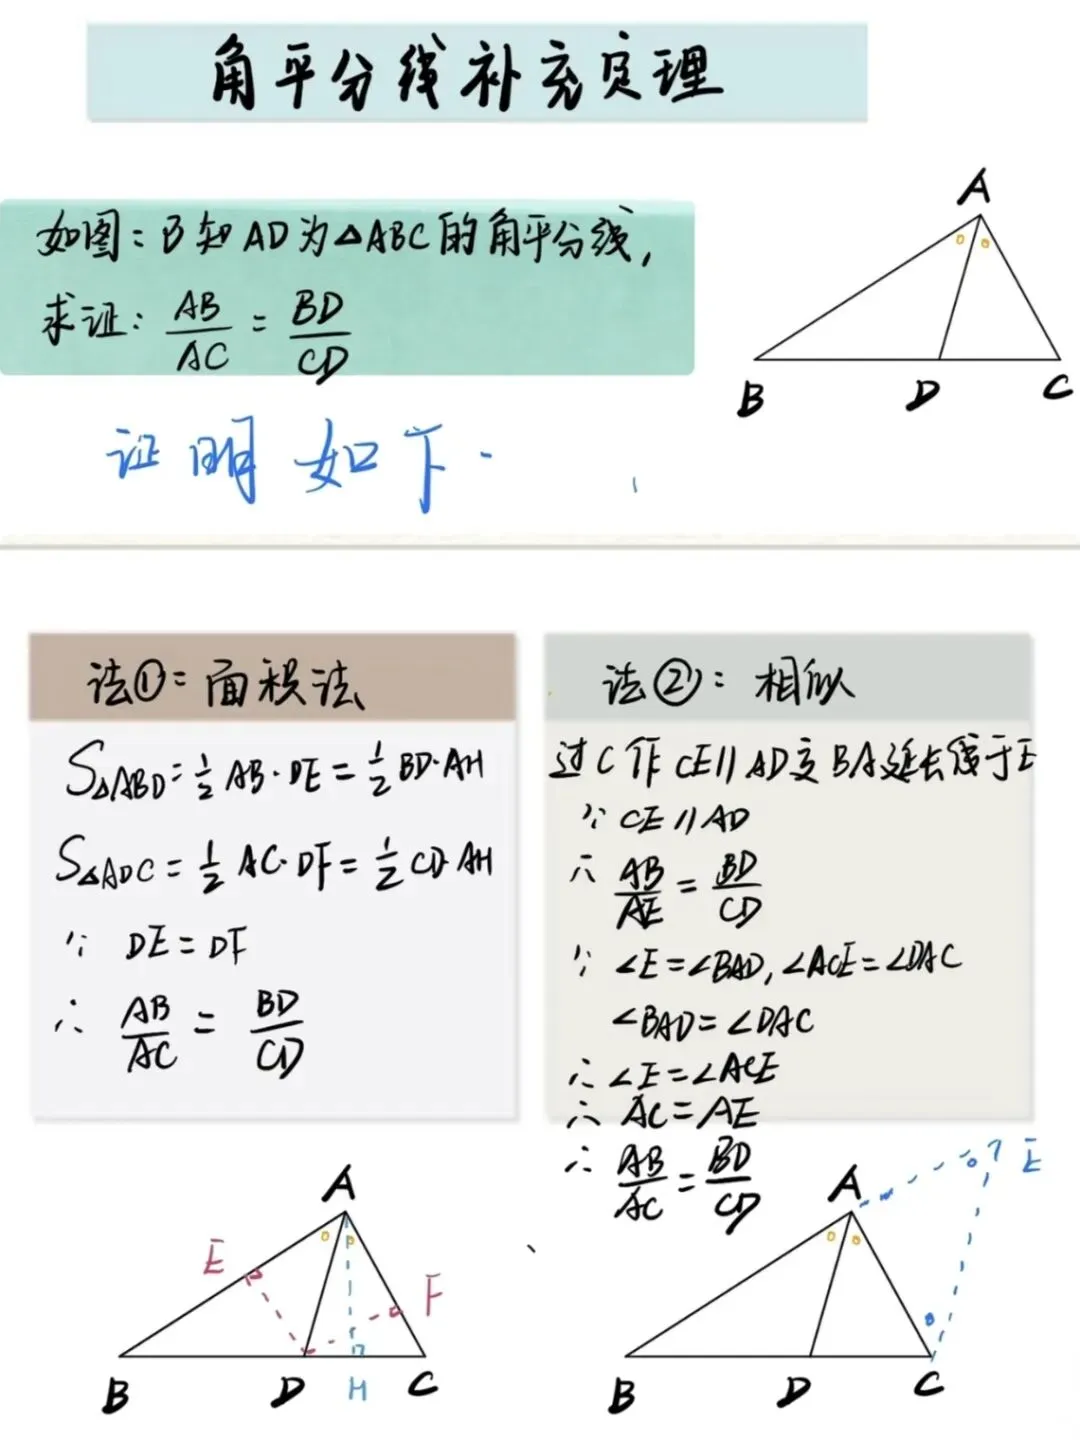 角平分线补充定理
如图：已知AD为△ABC的角平分线，
求证：AB/AC = BD/CD
证明如下.
A
B D C
法①：面积法
S△ABD=½AB·DE=½BD·AH
S△ADC=½AC·DF=½CD·AH
∵ DE=DF
∴ AB/AC = BD/CD
A
E
F
B D H C
法②：相似
过C作CE∥AD交BA延长线于E
∵ CE∥AD
∴ AB/AE = BD/CD
∵ ∠E=∠BAD,∠ACE=∠DAC
∠BAD=∠DAC
∴ ∠E=∠ACE
∴ AC=AE
∴ AB/AC = BD/CD
A E
B D C